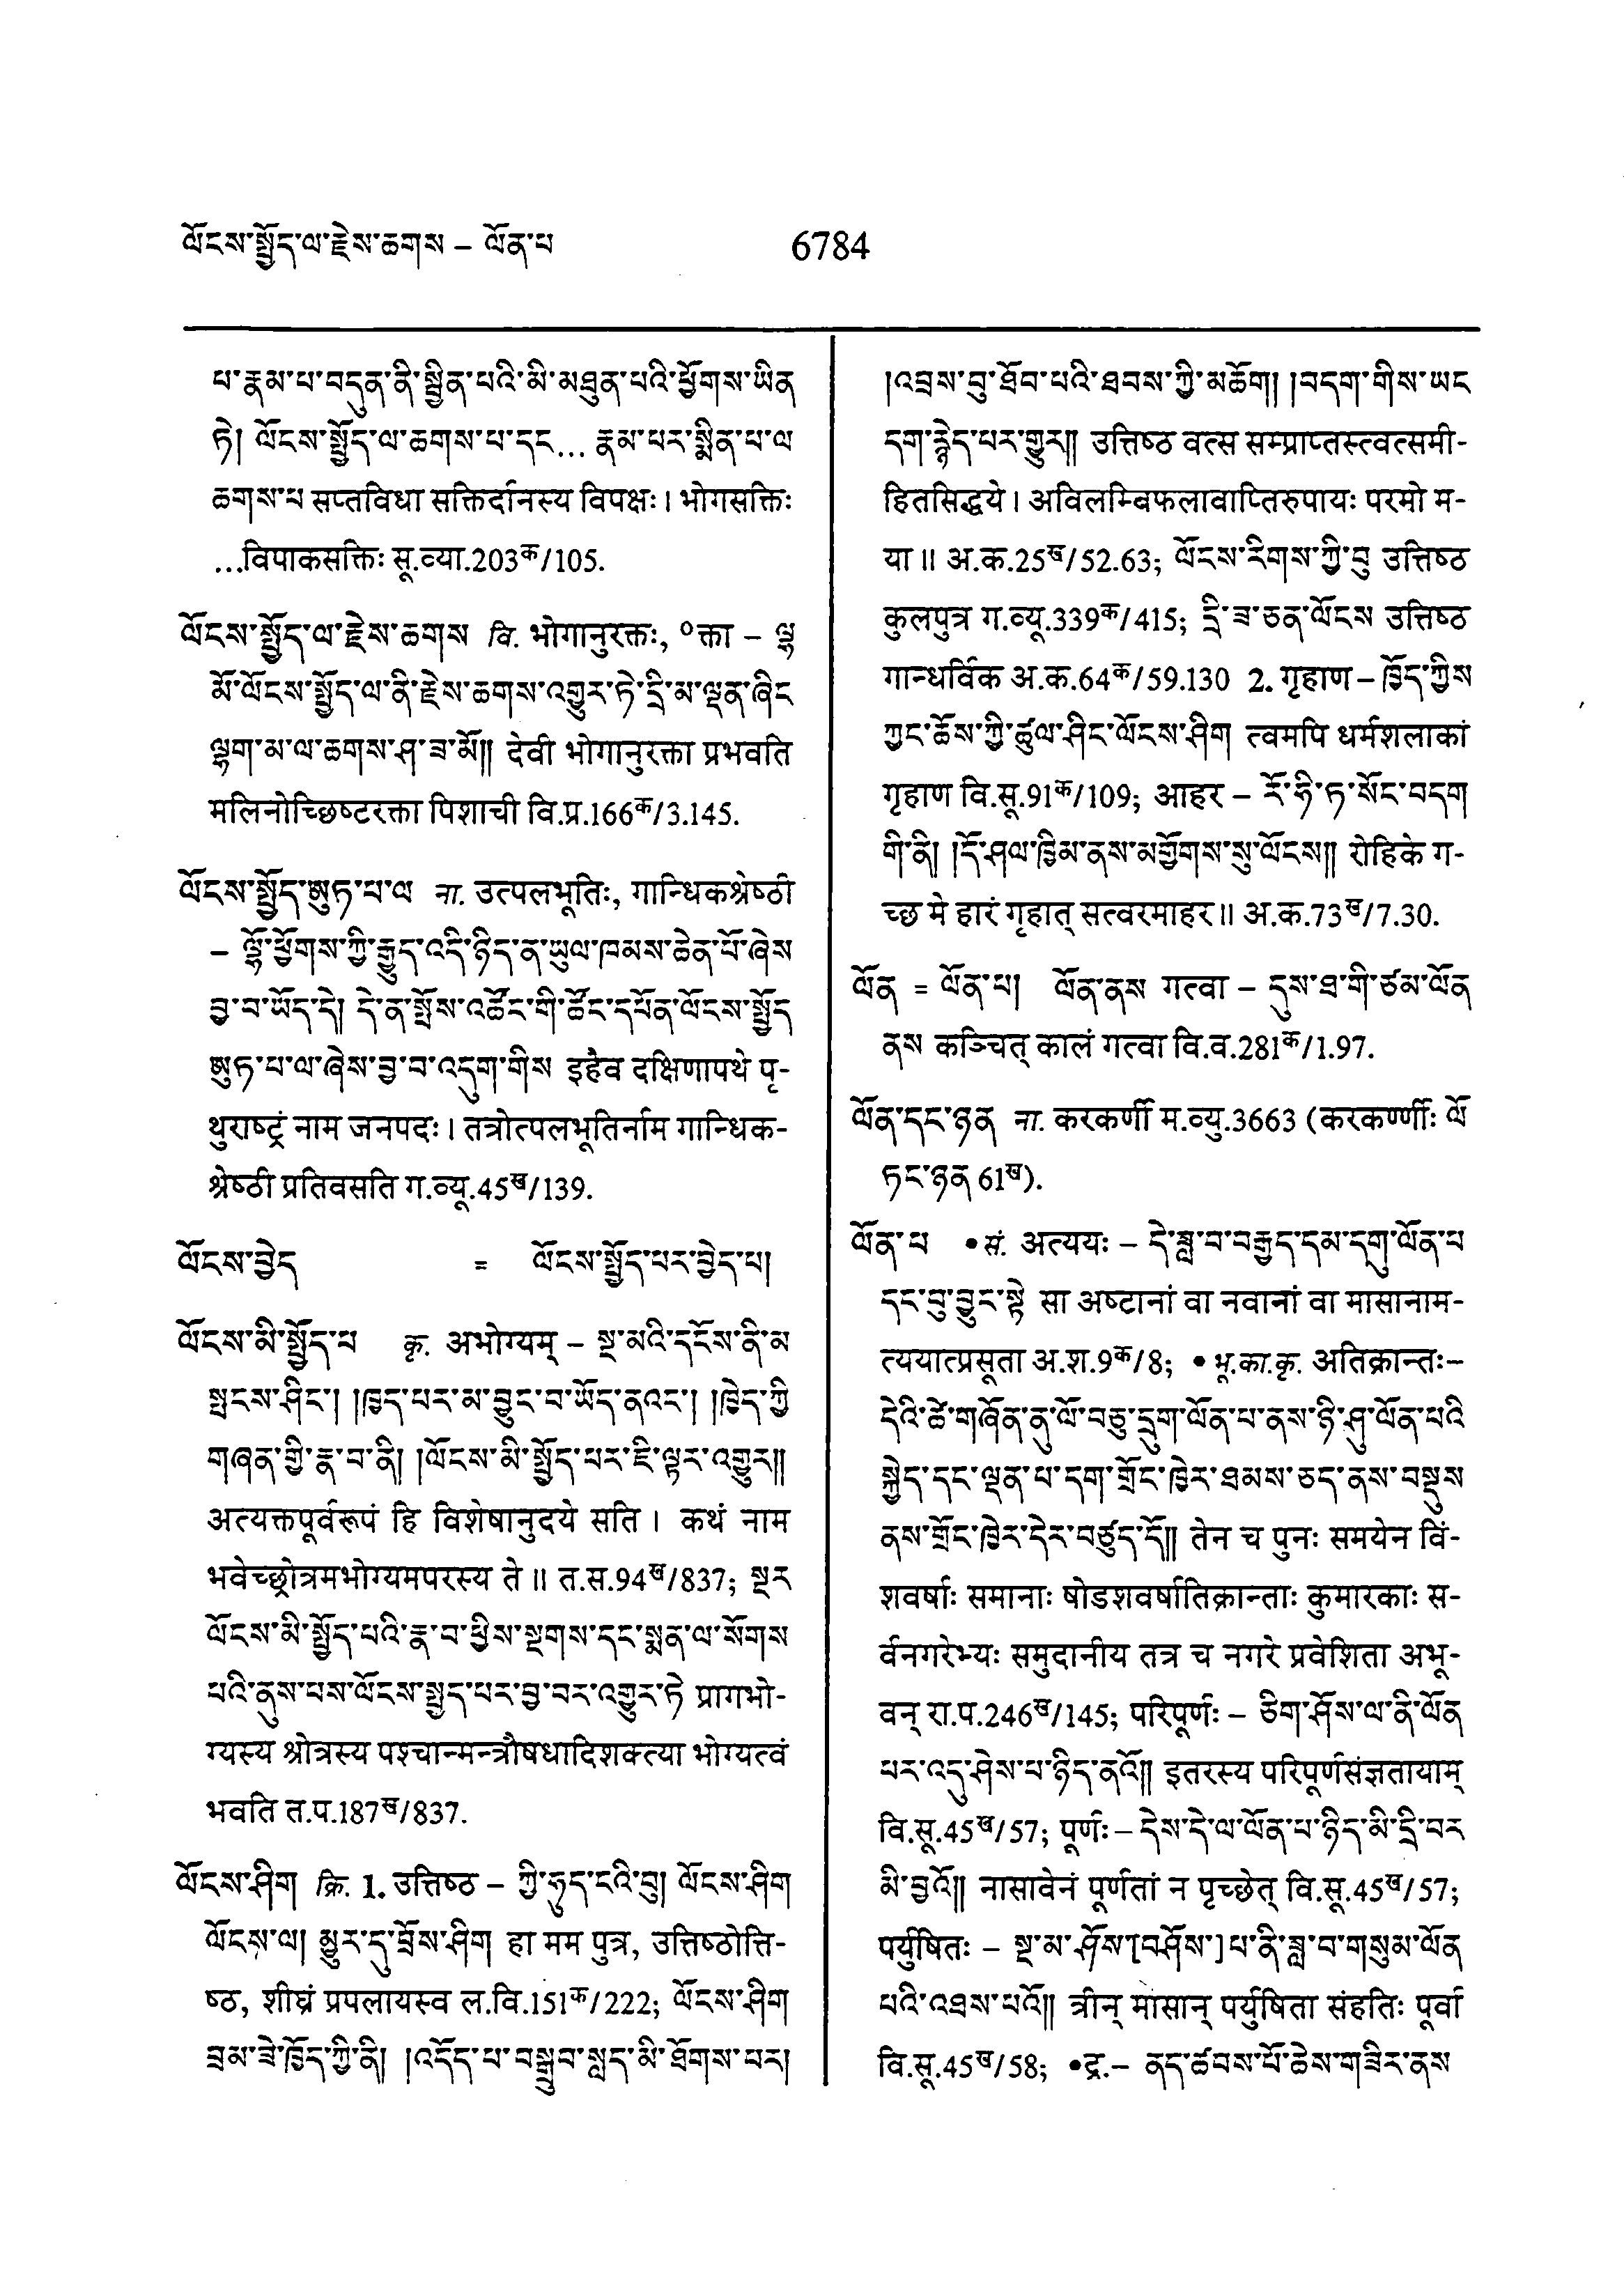 ལོངས་སྤྱོད་ལ་རྗེས་ཆགས – ལོན་པ 6784
པ་རྣམ་པ་བདུན་ནི་སྦྱིན་པའི་མི་མཐུན་པའི་ཕྱོགས་ཡིན
ཏེ། ལོངས་སྤྱོད་ལ་ཆགས་པ་དང... རྣམ་པར་སྨིན་པ་ལ
ཆགས་པ सप्तविधा सक्तिर्दानस्य विपक्षः। भोगसक्तिः
...विपाकसक्तिः सू.व्या.203क/105.
ལོངས་སྤྱོད་ལ་རྗེས་ཆགས वि. भोगानुरक्तः, ०क्ता – ལྷ
མོ་ལོངས་སྤྱོད་ལ་ནི་རྗེས་ཆགས་འགྱུར་ཏེ་དྲི་མ་ལྡན་ཞིང
ལྷག་མ་ལ་ཆགས་ཤ་ཟ་མོ།། देवी भोगानुरक्ता प्रभवति
मलिनोच्छिष्टरक्ता पिशाची वि.प्र.166क/3.145.
ལོངས་སྤྱོད་ཨུཏ་པ་ལ ना. उत्पलभूतिः, गान्धिकश्रेष्ठी
– ལྷོ་ཕྱོགས་ཀྱི་རྒྱུད་འདི་ཉིད་ན་ཡུལ་ཁམས་ཆེན་པོ་ཞེས
བྱ་བ་ཡོད་དེ། དེ་ན་སྤོས་འཚོང་གི་ཚོང་དཔོན་ལོངས་སྤྱོད
ཨུཏ་པ་ལ་ཞེས་བྱ་བ་འདུག་གིས इहैव दक्षिणापथे पृ-
थुराष्ट्रं नाम जनपदः। तत्रोत्पलभूतिर्नाम गान्धिक-
श्रेष्ठी प्रतिवसति ग.व्यू.45ख/139.
ལོངས་བྱེད = ལོངས་སྤྱོད་པར་བྱེད་པ།
ལོངས་མི་སྤྱོད་པ कृ. अभोग्यम् – སྔ་མའི་དངོས་ནི་མ
སྤངས་ཤིང་། །ཁྱད་པར་མ་བྱུང་བ་ཡོད་ནའང་། །ཁྱེད་ཀྱི
གཞན་གྱི་རྣ་བ་ནི། །ལོངས་མི་སྤྱོད་པར་ཇི་ལྟར་འགྱུར།།
अत्यक्तपूर्वरूपं हि विशेषानुदये सति। कथं नाम
भवेच्छ्रोत्रमभोग्यमपरस्य ते॥ त.स.94ख/837; སྔར
ལོངས་མི་སྤྱོད་པའི་རྣ་བ་ཕྱིས་སྔགས་དང་སྨན་ལ་སོགས
པའི་ནུས་པས་ལོངས་སྤྱད་པར་བྱ་བར་འགྱུར་ཏེ प्रागभो-
ग्यस्य श्रोत्रस्य पश्चान्मन्त्रौषधादिशक्त्या भोग्यत्वं
भवति त.प.187ख/837.
ལོངས་ཤིག क्रि. 1. उत्तिष्ठ – ཀྱི་ཧུད་ངའི་བུ། ལོངས་ཤིག
ལོངས་ལ། མྱུར་དུ་བྲོས་ཤིག हा मम पुत्र, उत्तिष्ठोत्ति-
ष्ठ, शीघ्रं प्रपलायस्व ल.वि.151क/222; ལོངས་ཤིག
བྲམ་ཟེ་ཁྱོད་ཀྱི་ནི། །འདོད་པ་བསྒྲུབ་སླད་མི་ཐོགས་པར།
།འབྲས་བུ་ཐོབ་པའི་ཐབས་ཀྱི་མཆོག། །བདག་གིས་ཡང
དག་རྙེད་པར་གྱུར།། उत्तिष्ठ वत्स सम्प्राप्तस्त्वत्समी-
हितसिद्धये। अविलम्बिफलावाप्तिरुपायः परमो म-
या॥ अ.क.25ख/52.63; ལོངས་རིགས་ཀྱི་བུ उत्तिष्ठ
कुलपुत्र ग.व्यू.339क/415; དྲི་ཟ་ཅན་ལོངས उत्तिष्ठ
गान्धर्विक अ.क.64क/59.130 2. गृहाण – ཁྱོད་ཀྱིས
ཀྱང་ཆོས་ཀྱི་ཚུལ་ཤིང་ལོངས་ཤིག त्वमपि धर्मशलाकां
गृहाण वि.सू.91क/109; आहर – རོ་ཧི་ཏ་སོང་བདག
གི་ནི། །དོ་ཤལ་ཁྱིམ་ནས་མགྱོགས་སུ་ལོངས།། रोहिके ग-
च्छ मे हारं गृहात् सत्वरमाहर॥ अ.क.73ख/7.30.
ལོན = ལོན་པ། ལོན་ནས गत्वा – དུས་ཐ་གི་ཙམ་ལོན
ནས कञ्चित् कालं गत्वा वि.व.281क/1.97.
ལོན་དང་ཉན ना. करकर्णी म.व्यु.3663 (करकर्ण्णीः ལོ
ཏང་ཉན 61ख).
ལོན་པ • सं. अत्ययः – དེ་ཟླ་བ་བརྒྱད་དམ་དགུ་ལོན་པ
དང་བུ་བྱུང་སྟེ सा अष्टानां वा नवानां वा मासानाम-
त्ययात्प्रसूता अ.श.9क/8; • भू.का.कृ. अतिक्रान्तः–
དེའི་ཚེ་གཞོན་ནུ་ལོ་བཅུ་དྲུག་ལོན་པ་ནས་ཉི་ཤུ་ལོན་པའི
སྐྱེད་དང་ལྡན་པ་དག་གྲོང་ཁྱེར་ཐམས་ཅད་ནས་བསྡུས
ནས་གྲོང་ཁྱེར་དེར་བཙུད་དོ།། तेन च पुनः समयेन विं-
शवर्षाः समानाः षोडशवर्षातिक्रान्ताः कुमारकाः स-
र्वनगरेभ्यः समुदानीय तत्र च नगरे प्रवेशिता अभू-
वन् रा.प.246ख/145; परिपूर्णः – ཅིག་ཤོས་ལ་ནི་ལོན
པར་འདུ་ཤེས་པ་ཉིད་ནའོ།། इतरस्य परिपूर्णसंज्ञतायाम्
वि.सू.45ख/57; पूर्णः – དེས་དེ་ལ་ལོན་པ་ཉིད་མི་དྲི་བར
མི་བྱའོ།། नासावेनं पूर्णतां न पृच्छेत् वि.सू.45ख/57;
पर्युषितः – སྔ་མ་ཤོས་[བཤོས་]པ་ནི་ཟླ་བ་གསུམ་ལོན
པའི་འཐས་པའོ།། त्रीन् मासान् पर्युषिता संहतिः पूर्वा
वि.सू.45ख/58; •द्र.– ནད་ཚབས་པོ་ཆེས་གཟིར་ནས